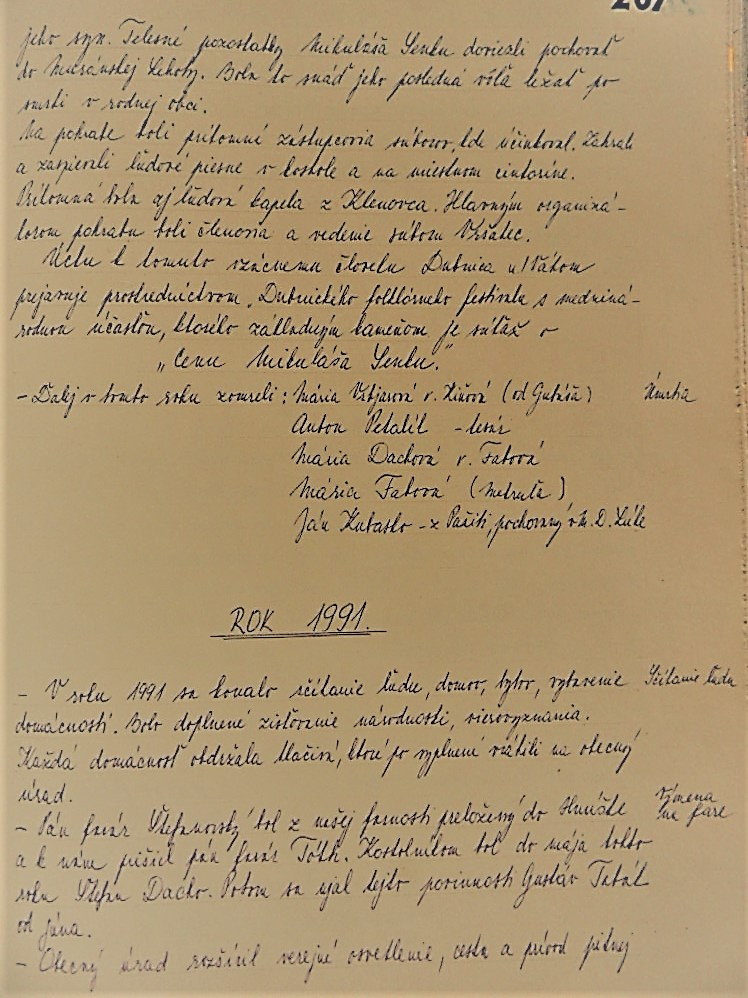 207
jeho syn. Telesné pozostatky Mikuláša Senku doviezli pochovať
do Muránskej Lehoty. Bola to snáď jeho posledná vôľa ležať po
smrti v rodnej obci.
Na pohrabe boli prítomní zástupcovia súborov, kde účinkoval. Zahrali
a zaspievali ľudové piesne v kostole a na miestnom cintoríne.
Prítomná bola aj ľudová kapela z Klenovca. Hlavným organizá-
torom pohrabu boli členovia a vedenie súboru Vršatec.
Úctu k tomuto vzácnemu človeku Dubnica n/Váhom
prejavuje prostredníctvom „Dubnického folklórneho festivalu s medziná-
rodnou účasťou, ktorého základným kameňom je súťaž o
„Cenu Mikuláša Senku."
- Ďalej v tomto roku zomreli: Mária r. (od Gubáša) Úmrtia
Anton - lesár
Mária Dachová r. Fabová
Mária Fabová
Ján - z pochovaný v M. D. Lúke
ROK 1991.
- V roku 1991 sa konalo sčítanie ľudu, domov, bytov, vybavenie Sčítanie ľudu
domácností. Bolo doplnené zisťovanie národnosti, vierovyznania.
Každá domácnosť obdržala tlačivá, ktoré po vyplnení vrátili na obecný
úrad.
- Pán farár Štefanovský bol z našej farnosti preložený do Hnúšte výmena
a k nám prišiel pán farár Tóth. Kostolníkom bol do mája tohto na fare
roku Štefan Dacho. Potom sa ujal tejto povinnosti Gustáv
od júna.
- Obecný úrad rozšíril verejné osvetlenie, cestu a prívod pitnej